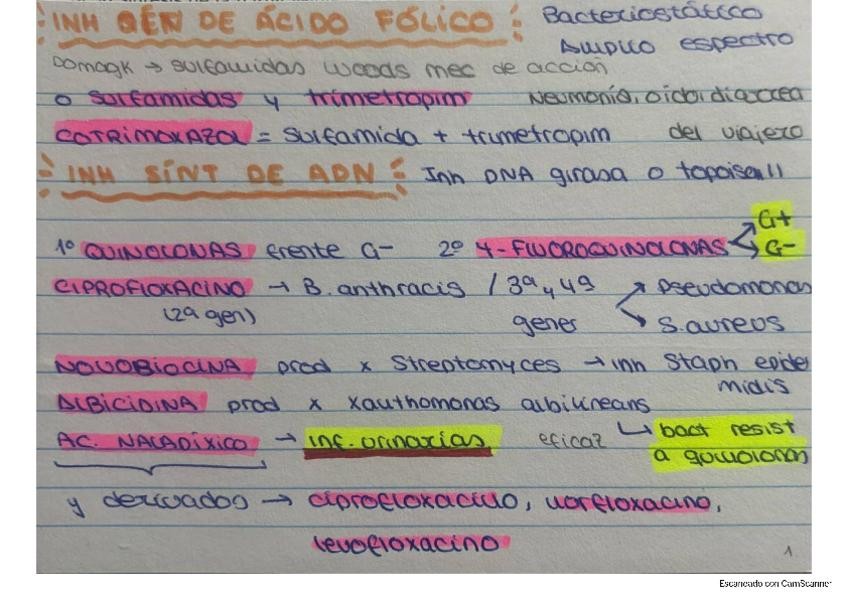 INH GEN DE ÁCIDO FÓLICO Bacteriostático
Amplio espectro
Domagk → sulfamidas woods mec de acción
o sulfamidas y trimetropim Neumonía, oído, diarrea
COTRIMOXAZOL = sulfamida + trimetropim del viajero
INH SÍNT DE ADN Inh DNA girasa o topoisom II
1º QUINOLONAS frente G- 2º 4-FLUOROQUINOLONAS G+
G-
CIPROFLOXACINO → B. anthracis / 3ª y 4ª Pseudomonas
(2ª gen) gener S. aureus
NOVOBIOCINA prod x Streptomyces → inh Staph epider
midis
ALBICIDINA prod x Xauthomonas albilineans
AC. NALADÍXICO → inf. urinarias eficaz ↳ bact resist
a quinolonas
y derivados → ciprofloxacino, norfloxacino,
levofloxacino
1
Escaneado con CamScanner